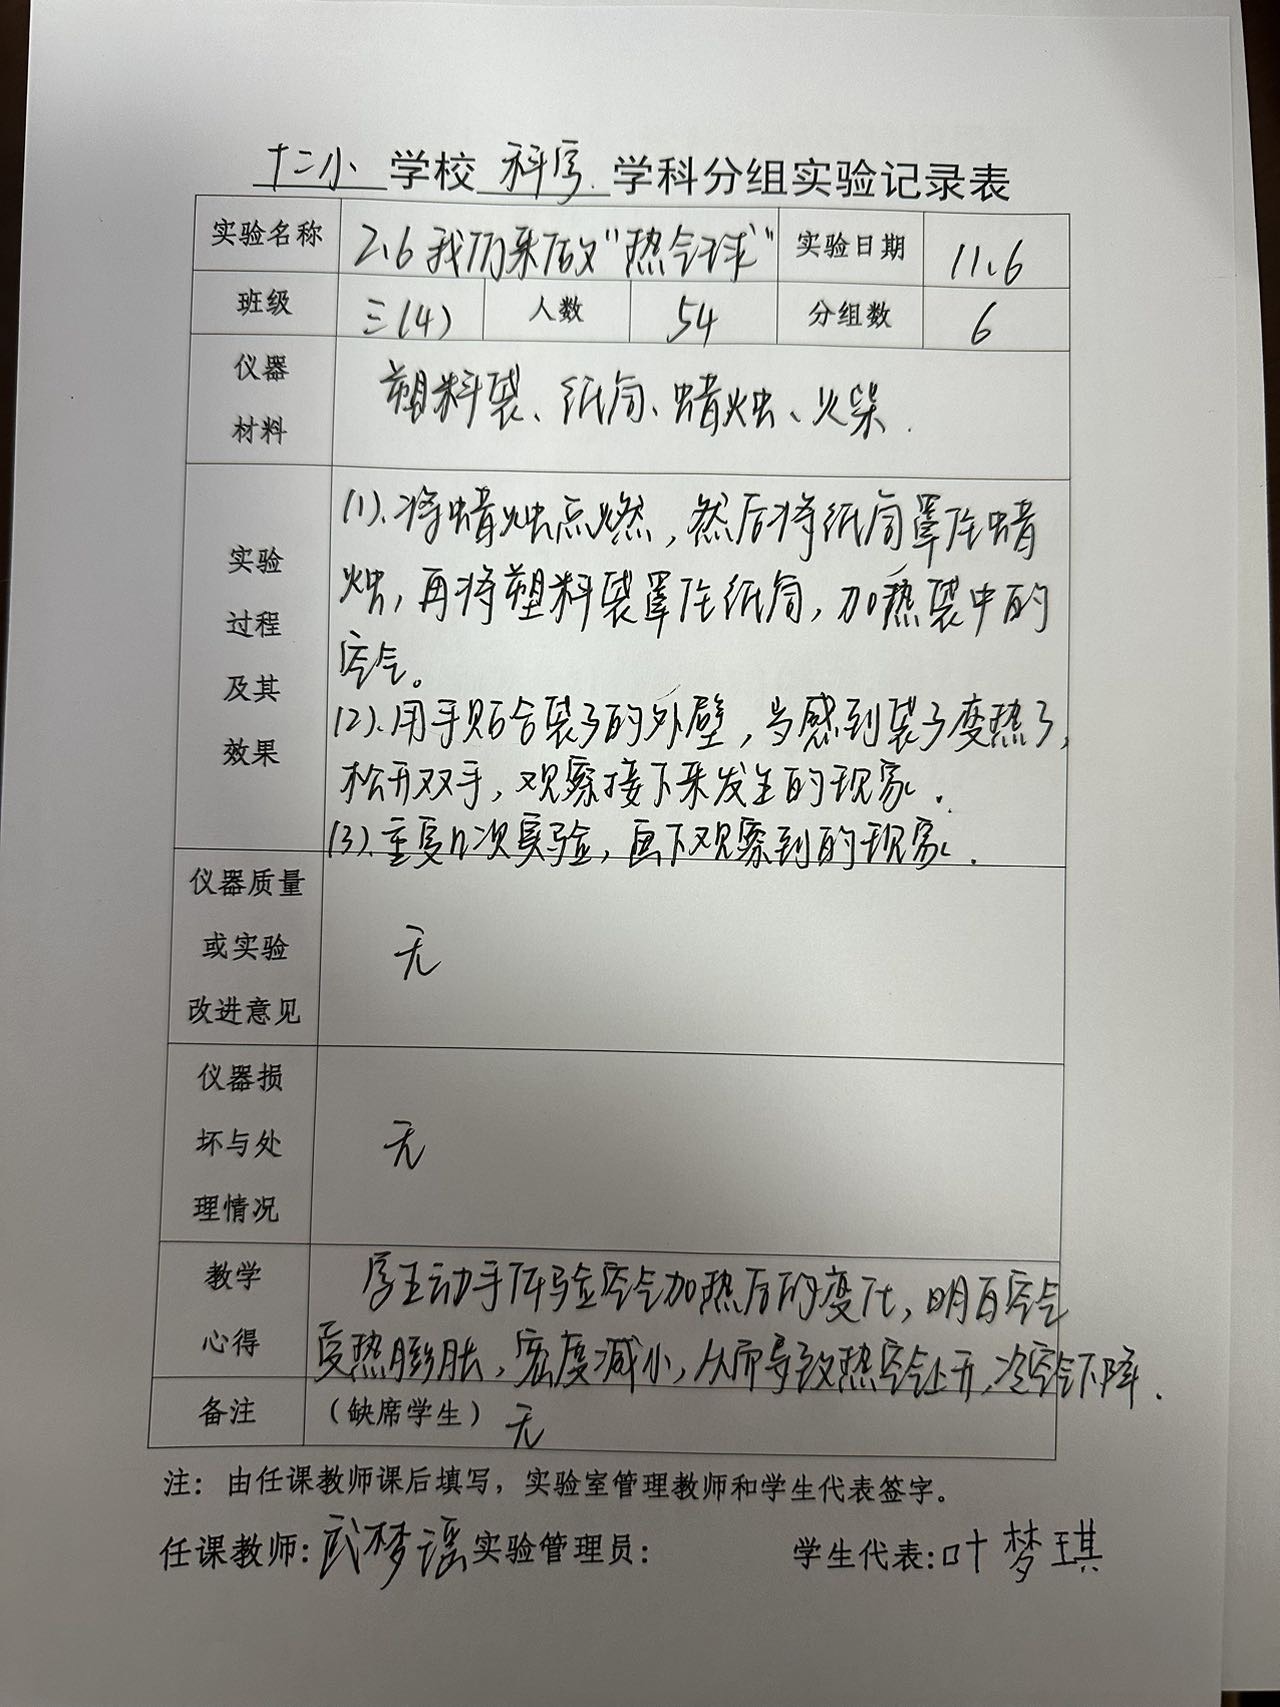 十二小 学校 科学 学科分组实验记录表
实验名称 2.6 我们来做"热气球" 实验日期 11.6
班级 三(4) 人数 54 分组数 6
仪器
材料
塑料袋、纸筒、蜡烛、火柴.
实验
过程
及其
效果
(1).将蜡烛点燃,然后将纸筒罩住蜡
烛,再将塑料袋罩住纸筒,加热袋中的
空气。
(2).用手贴合袋子的外壁,当感到袋子变热了,
松开双手,观察接下来发生的现象.
(3).重复几次实验,画下观察到的现象.
仪器质量
或实验
改进意见
无
仪器损
坏与处
理情况
无
教学
心得
学生动手体验空气加热后的变化,明白空气
受热膨胀,密度减小,从而导致热空气上升,冷空气下降.
备注 (缺席学生) 无
注:由任课教师课后填写,实验室管理教师和学生代表签字。
任课教师:武梦谣 实验管理员: 学生代表:叶梦琪